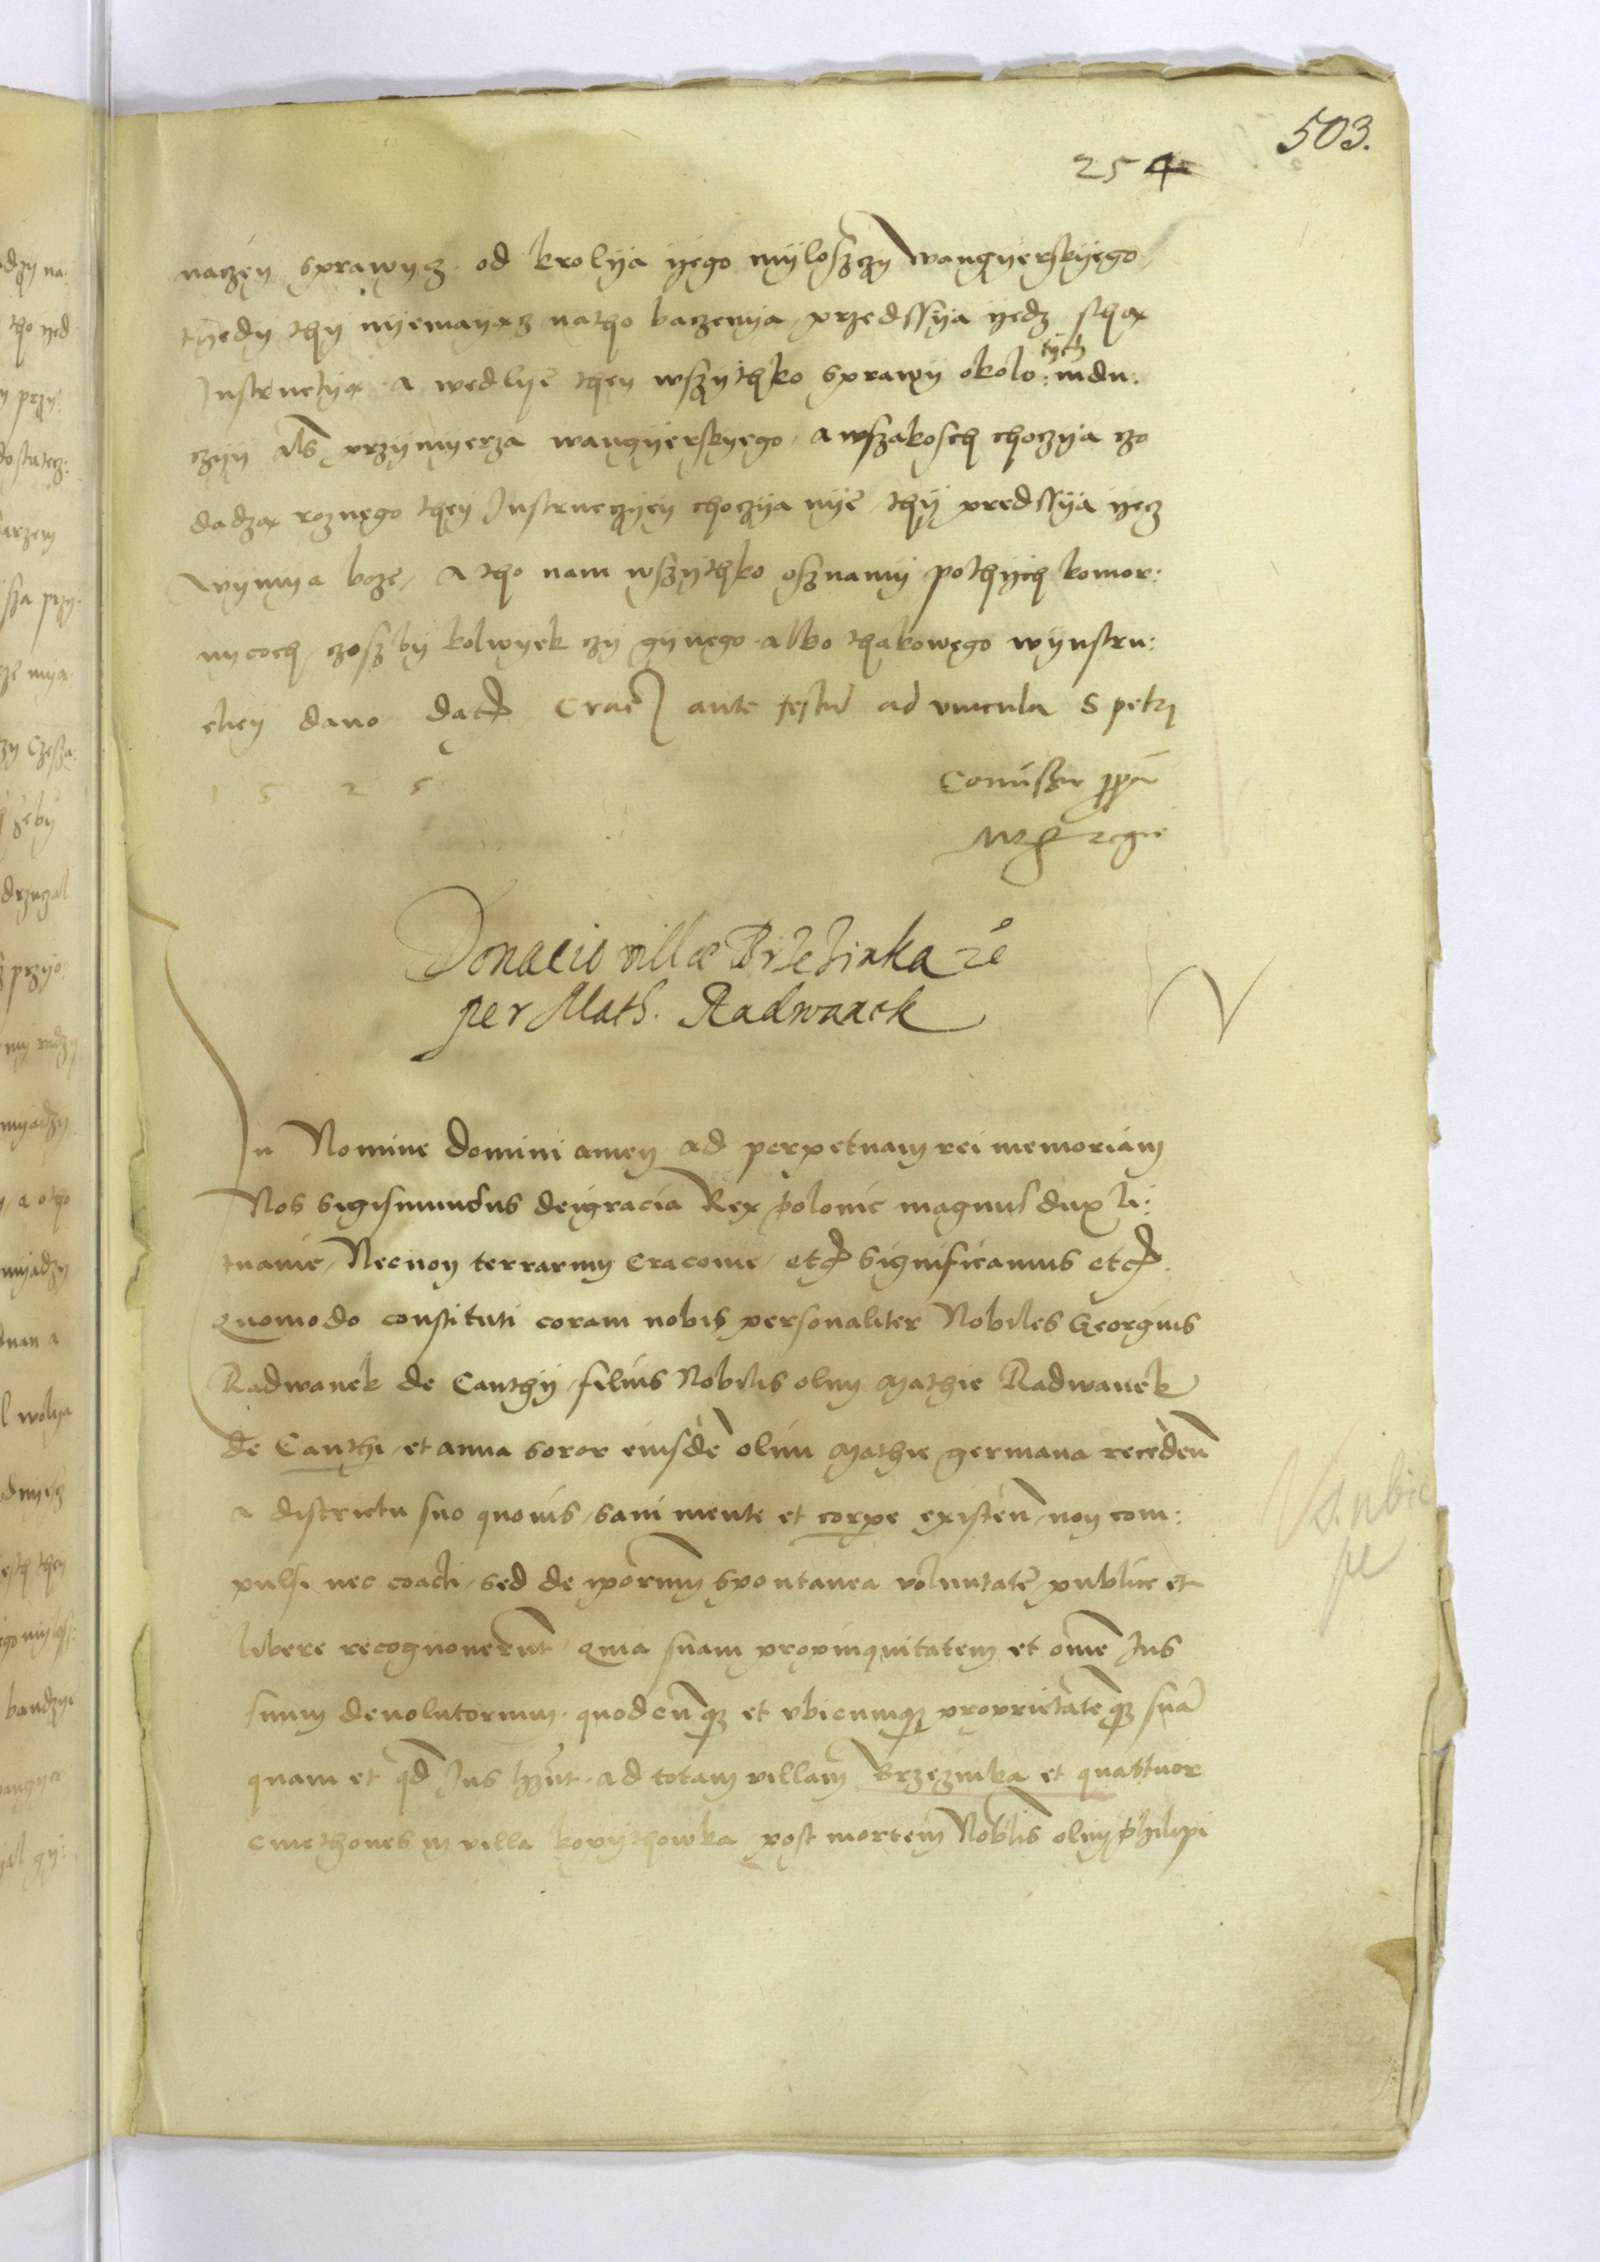 503.
254
naczey sprawycz od krolya yego myloszczy wangyerskyego
thedy thy nyemayacz natho baczenya przedssya yedz stha
Instructya a wedlye they wszythko sprawy okolo tych indu:
czyy als przymyerza wangyerskyego awszakosch choczya czo
dadza roznego they Instructyey choczya nye thy predssya yecz
wymya boze A tho nam wszythko osznamy pothych komor:
nycoch czosz by kolwyek czy gynego albo thakowego wynstru:
ctiey dano Craē ante festū ad vincula S petri
1 5 2 5
Comissio ppa
regie
Donacio villæ Brzezinka
per Math. Radwanek
In Nomine domini amen ad perpetuam rei memoriam
Nos Sigismundus deigracia Rex polonie magnus dux li:
tuanie Necnon terrarum Cracovie etc significamus etc
Quomodo constituti coram nobis personaliter Nobiles Georgius
Radwanek de Canthy filius Nobilis olim Mathie Radwanek
de Canthi et anna soror eiusdē olim Mathie germana recedeñ
a districtu suo quovis sani mente et corpe existeñ non com:
pulsi nec coacti sed de ipsorum spontanea voluntate publice et
libere recognoverunt quia suam propinquitatem et ome Ius
suum devolutorium quodcunqz et ubicumqz proprietatemqz suā
quam et qd Ius hñt ad totam villam Brzezinka et quattuor
cmethones in villa kopythowka post mortem Nobilis olim philipi